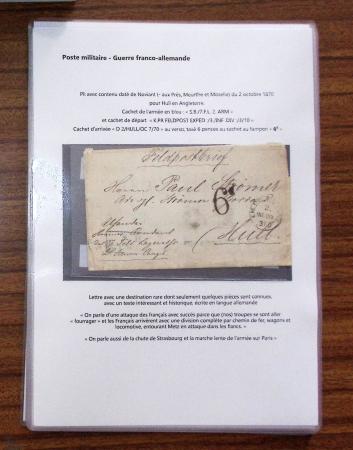 Poste militaire - Guerre franco-allemande
Pli avec contenu daté de Noviant (- aux Prés, Meurthe et Moselle) du 2 octobre 1870
pour Hull en Angleterre.
Cachet de l'armée en bleu : « S.B./7.F.L. 2. ARM »
et cachet de départ « K.PR FELDPOST EXPED /3./INF DIV /3/10 »
Cachet d'arrivée « D 2/HULL/OC 7/70 » au verso, taxé 6 pences au cachet au tampon « 6ᵈ »
Feldpostbrief
Herrn Paul Strömer
6
Hull
Lettre avec une destination rare dont seulement quelques pièces sont connues,
avec un texte intéressant et historique, écrite en langue allemande
« On parle d'une attaque des français avec succès parce que (nos) troupes-se sont aller
« fourrager » et les Français arrivèrent avec une division complète par chemin de fer, wagons et
locomotive, entourant Metz en attaque dans les flancs. »
« On parle aussi de la chute de Strasbourg et la marche lente de l'armée sur Paris »